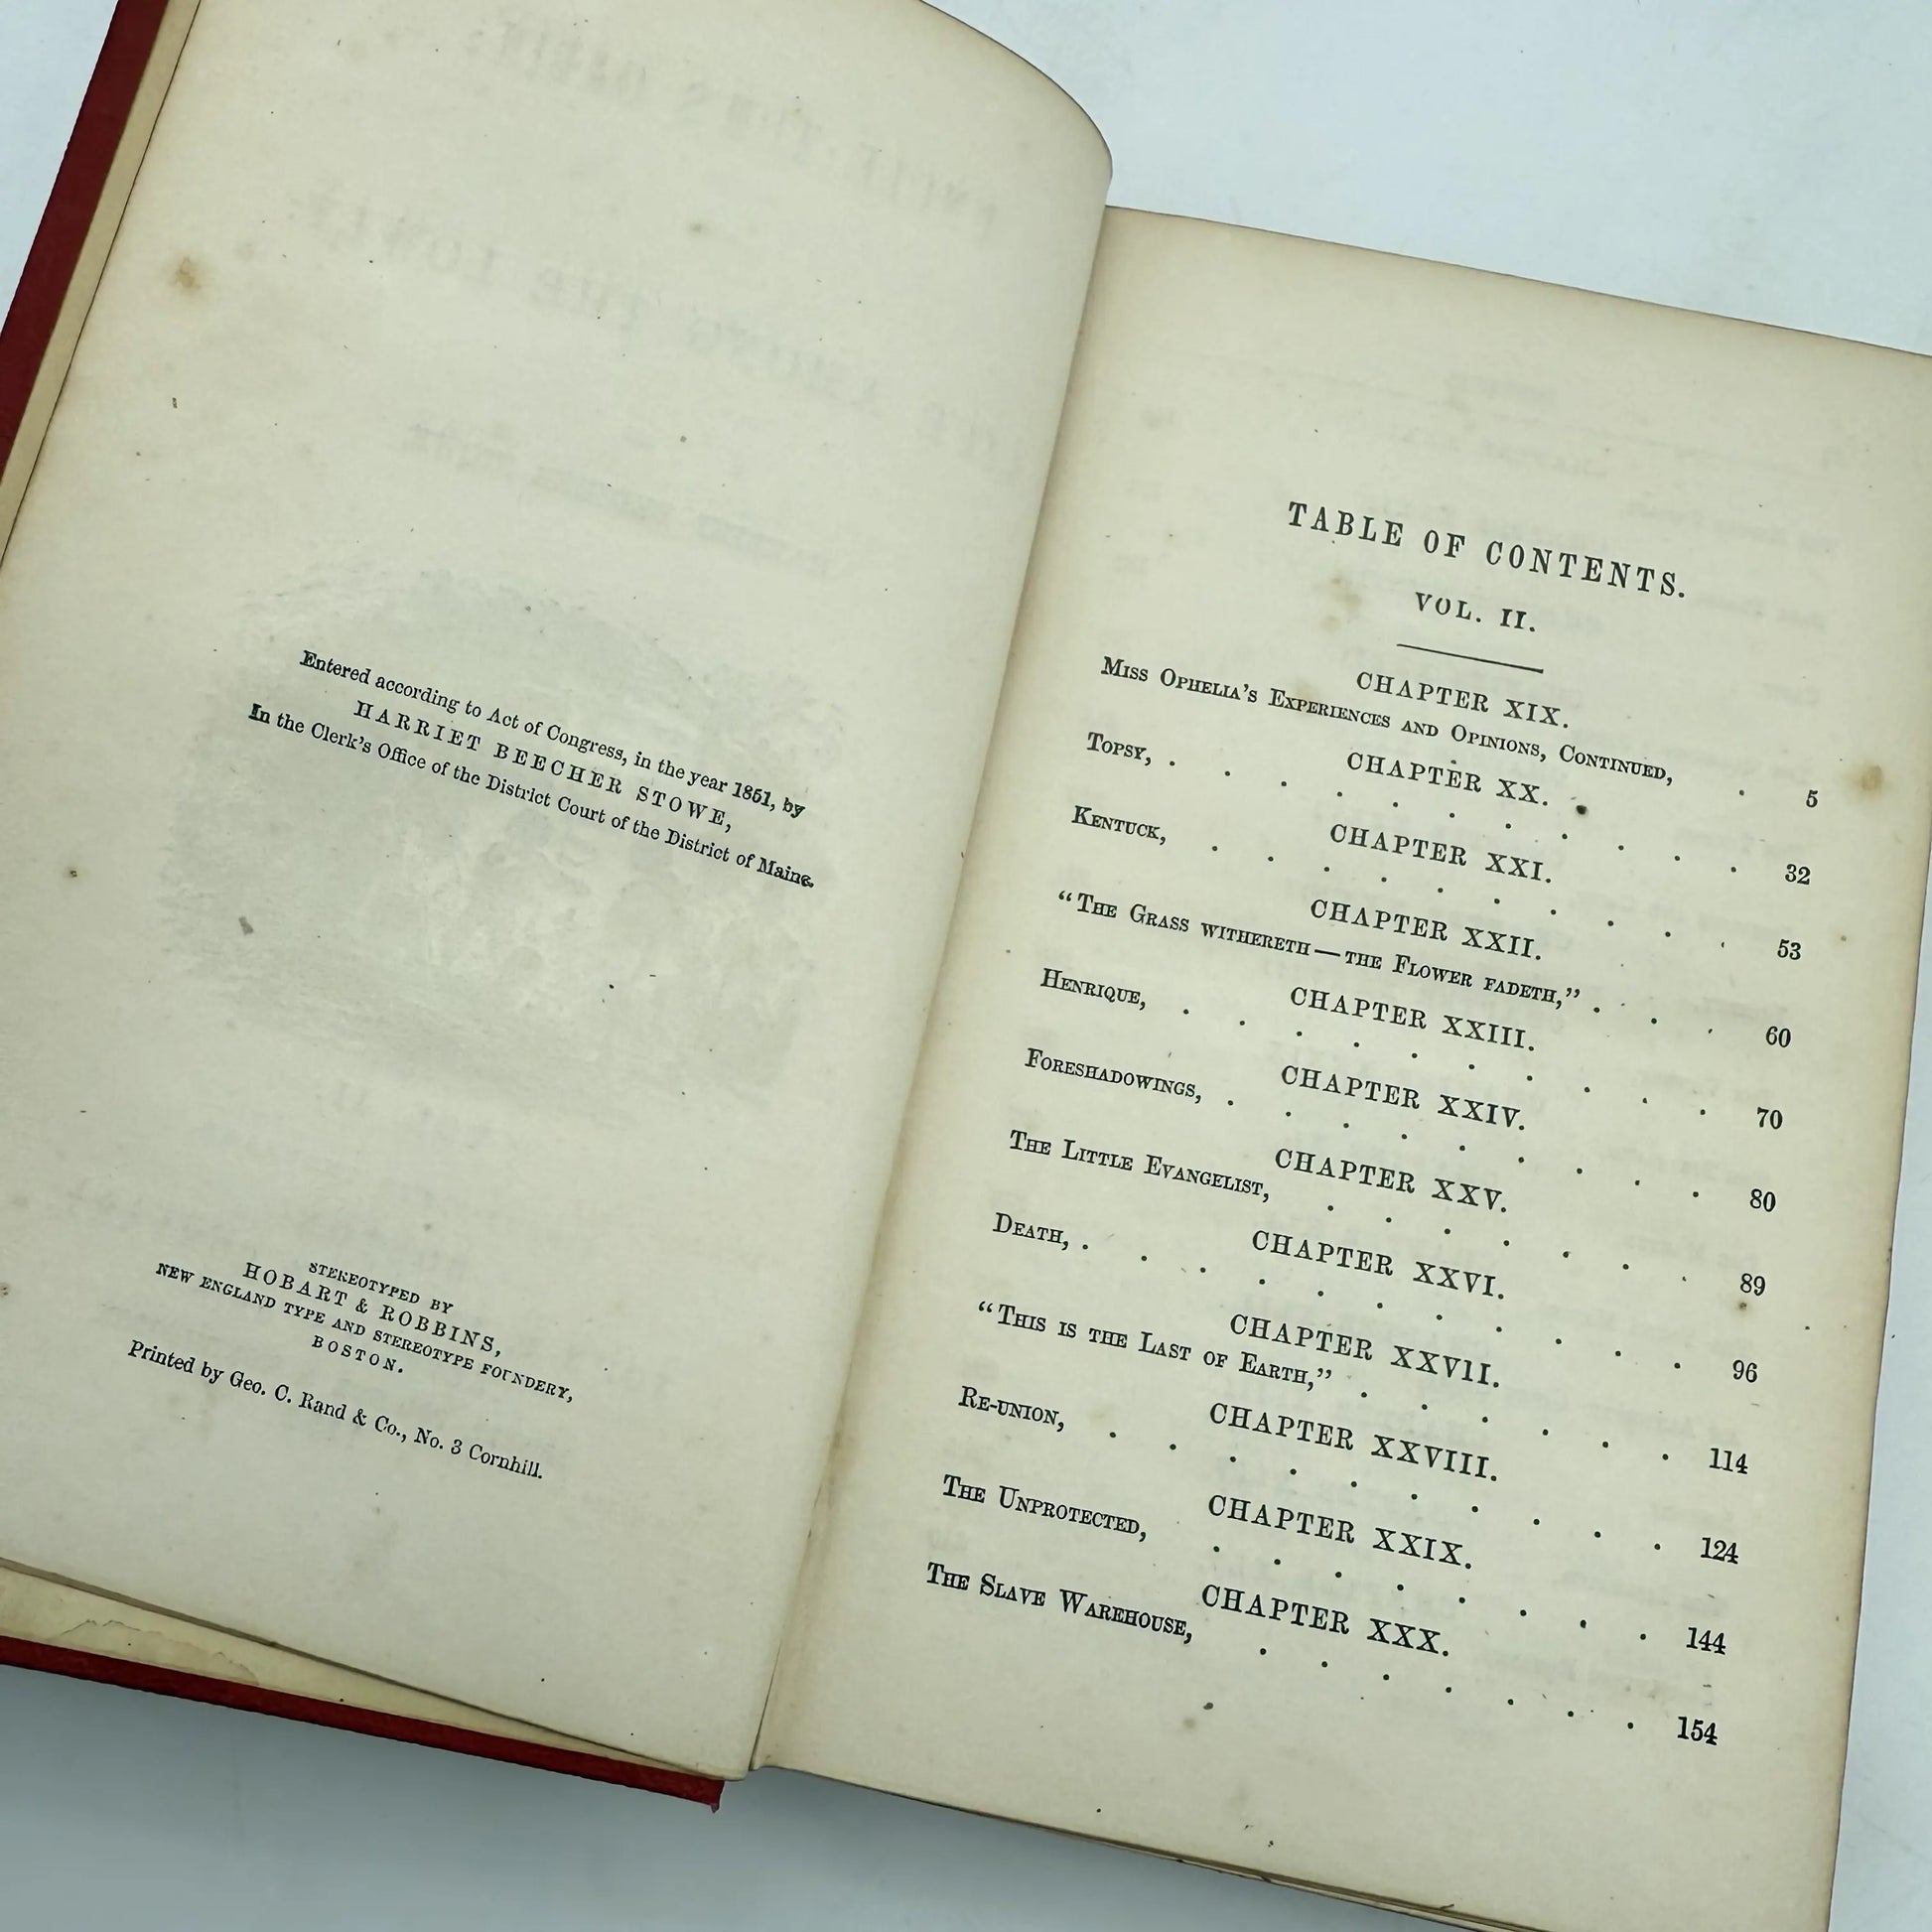 Entered according to Act of Congress, in the year 1851, by
HARRIET BEECHER STOWE,
In the Clerk's Office of the District Court of the District of Maine.
STEREOTYPED BY
HOBART & ROBBINS,
NEW ENGLAND TYPE AND STEREOTYPE FOUNDERY,
BOSTON.
Printed by Geo. C. Rand & Co., No. 3 Cornhill.
TABLE OF CONTENTS.
VOL. II.
CHAPTER XIX.
Miss Ophelia's Experiences and Opinions, Continued, . 5
CHAPTER XX.
Topsy, . . . . . . . . . . . 32
CHAPTER XXI.
Kentuck, . . . . . . . . . . 53
CHAPTER XXII.
"The Grass withereth — the Flower fadeth," . . . 60
CHAPTER XXIII.
Henrique, . . . . . . . . . . 70
CHAPTER XXIV.
Foreshadowings, . . . . . . . . . 80
CHAPTER XXV.
The Little Evangelist, . . . . . . . 89
CHAPTER XXVI.
Death, . . . . . . . . . . . 96
CHAPTER XXVII.
"This is the Last of Earth," . . . . . . 114
CHAPTER XXVIII.
Re-union, . . . . . . . . . . 124
CHAPTER XXIX.
The Unprotected, . . . . . . . . 144
CHAPTER XXX.
The Slave Warehouse, . . . . . . . 154